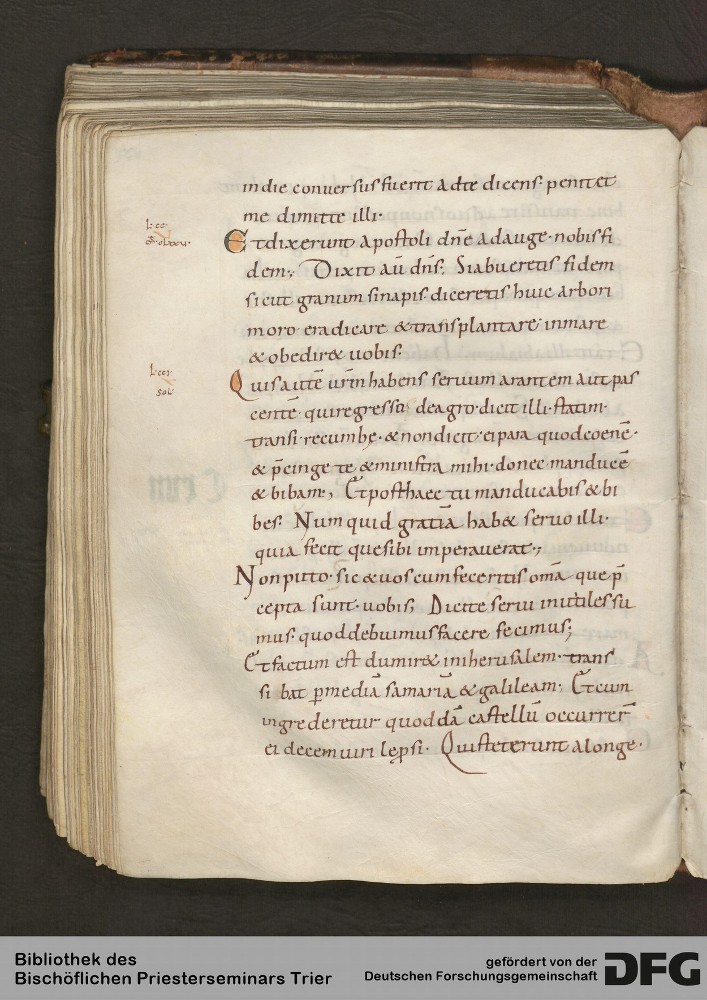 in die conuersus fuerit ad te dicens· penitet
me dimitte illi·
Et dixerunt apostoli dn̄e adauge· nobis fi
dem·, Dixit aū dn̄s; Si abueretis fidem
sicut granum sinapis· diceretis huic arbori
moro· eradicare & transplantare· in mare
& obedir& uobis·
Quis autē ur̄m habens seruum arantem aut pas
centē· qui regresso de agro· dicit illi· statim·
transi· recumbe· & non dicit· ei para quod coenē·
& p̄cinge te, & ministra mihi· donec manducē
& bibam·, Et post haec tu manducabis & bi
bes· Numquid gratiā hab& seruo illi·
quia fecit que sibi imperauerat·,
Non puto· sic & uos cum feceritis om̄a que p̄
cepta sunt· uobis; Dicite serui inutiles su
mus· quod debuimus facere fecimus;
Et factum est dum ir& in iherusalem· trans
si bat p mediā samariā & galileam; Et cum
ingrederetur quoddā castellū occurrer̄
ei decem uiri lepsi· Qui steterunt a longe·
Bibliothek des
Bischöflichen Priesterseminars Trier
gefördert von der
Deutschen Forschungsgemeinschaft
DFG